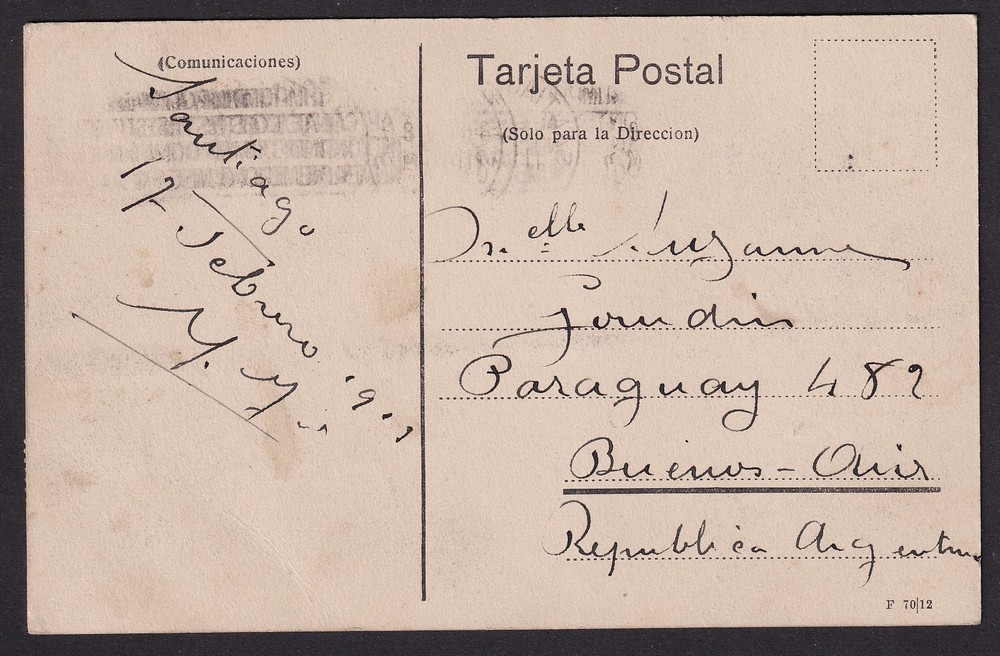 (Comunicaciones)
Santiago
17 Febrero
Tarjeta Postal
(Solo para la Direccion)
Melle Suzanne
Paraguay 482
Buenos-Aires
Republica Argentina
F 70|12